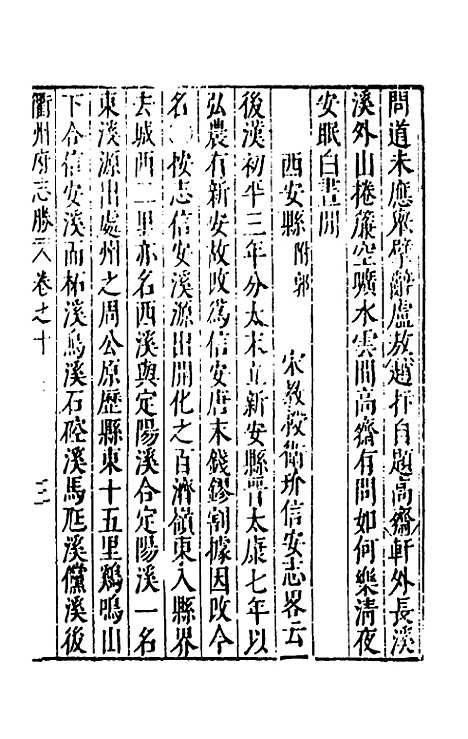 問道未應慚擘辭盧敖趙抃自題高齋軒外長溪
溪外山捲簾空曠水雲間高齋有問如何樂清夜
安眠白晝閒
西安縣 附郭 宋教授衛玠信安志畧云
後漢初平三年分太末立新安縣晋太康七年以
弘農有新安故改爲信安唐末錢鏐割據因改今
名 按志信安溪源出開化之百濟嶺東入縣界
去城西二里亦名西溪與定陽溪合定陽溪一名
東溪源出處州之周公原歷縣東十五里鷄鳴山
下合信安溪而柘溪烏溪石硿溪馬尫溪儻溪後
衢州府志勝 卷之十 三